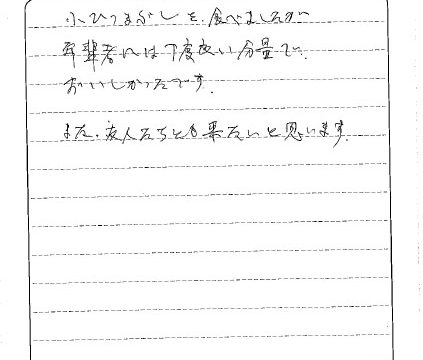 小ひつまぶしを、食べましたが
年輩者には丁度良い分量で、
おいしかったです.
また、友人たちとも来たいと思います.